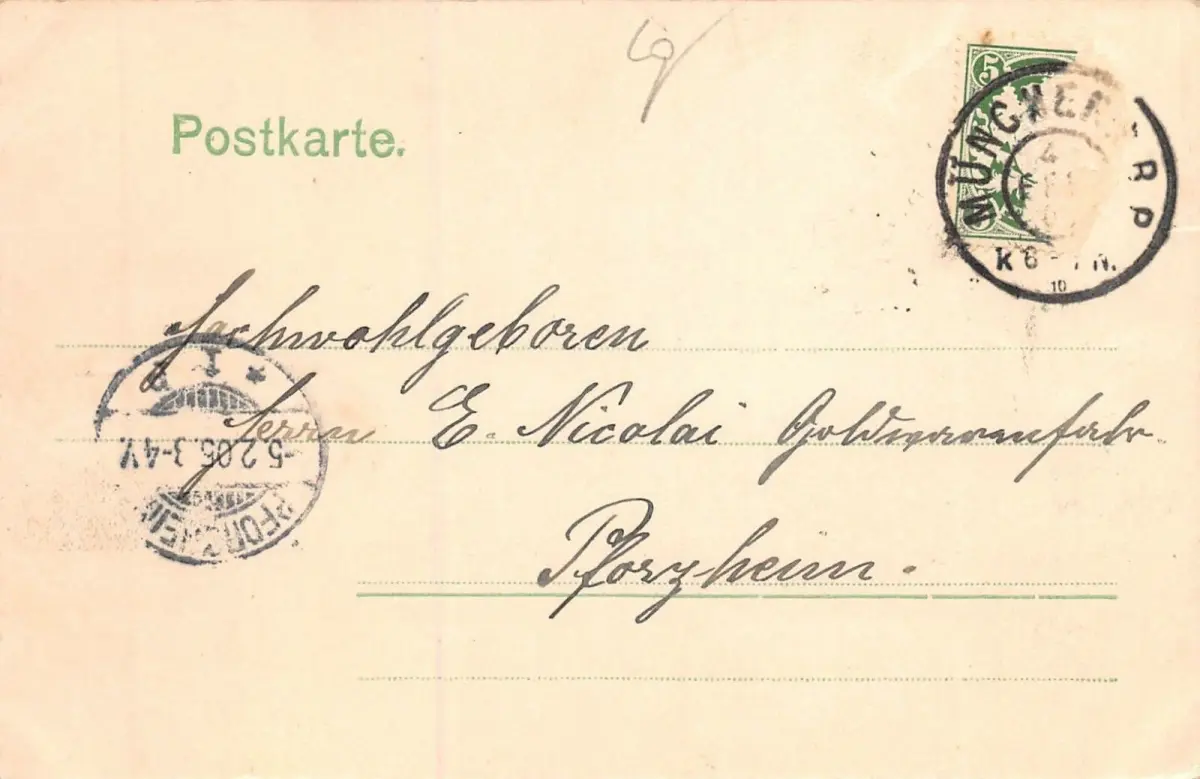 Postkarte.
5
MÜNCHEN
B.P
4
FEB
K 6 - 7 N.
10
Hochwohlgeboren
Herrn E. Nicolai Goldwarenfabr.
Pforzheim.
PFORZHEIM
-5.2.05.3-4V.
* 1 *